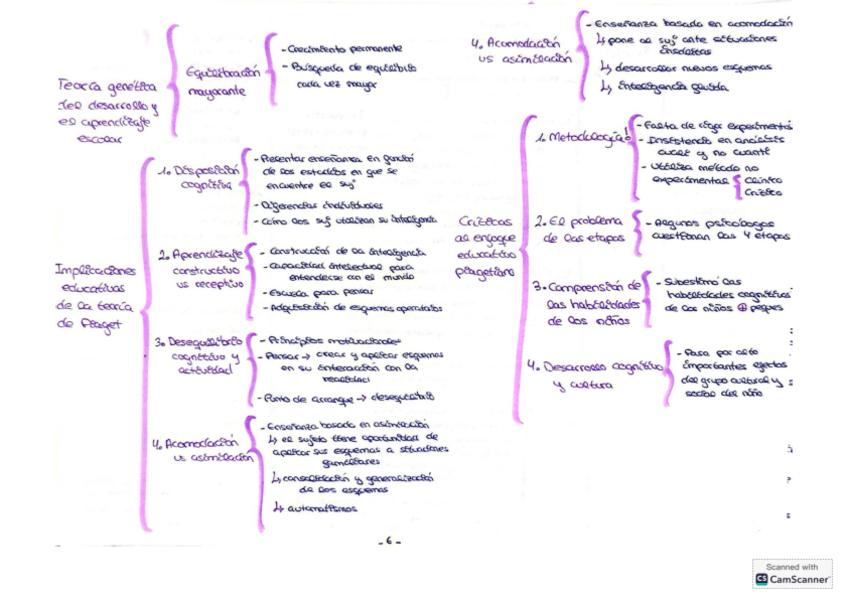 Teoría genética
del desarrollo y
el aprendizaje
escolar
Equilibración
mayorante
- Crecimiento permanente
- Búsqueda de equilibrio
cada vez mayor
Implicaciones
educativas
de la teoría
de Piaget
1. Disposición
cognitiva
- Presentar enseñanza en función
de los estadios en que se
encuentre el suj°
- Diferencias individuales
- Cómo los suj utilizan su inteligencia
2. Aprendizaje
constructivo
vs receptivo
- Construcción de la inteligencia
- Capacidad intelectual para
entenderse con el mundo
- Escuela para pensar
- Adquisición de esquemas operatorios
3. Desequilibrio
cognitivo y
actividad
- Principios motivacionales
- Pensar → crear y aplicar esquemas
en su interacción con la
realidad
- Punto de arranque → desequilibrio
4. Acomodación
vs asimilación
- Enseñanza basada en asimilación
↳ el sujeto tiene oportunidad de
aplicar sus esquemas a situaciones
familiares
↳ consolidación y generalización
de los esquemas
↳ automatismos
4. Acomodación
vs asimilación
- Enseñanza basada en acomodación
↳ pone al suj° ante situaciones
insólitas
↳ desarrollar nuevos esquemas
↳ inteligencia fluida
Críticas
al enfoque
educativo
piagetiano
1. Metodología
- Falta de rigor experimental
- Insistencia en análisis
cualit y no cuantit
- Utiliza método no
experimental
Clínico
Crítico
2. El problema
de las etapas
- Algunos psicólogos
cuestionan las 4 etapas
3. Comprensión de
las habilidades
de los niños
- Subestimó las
habilidades cognitivas
de los niños ⊕ peques
4. Desarrollo cognitivo
y cultura
- Pasa por alto
importantes efectos
del grupo cultural y
social del niño
- 6 -
Scanned with
CS CamScanner